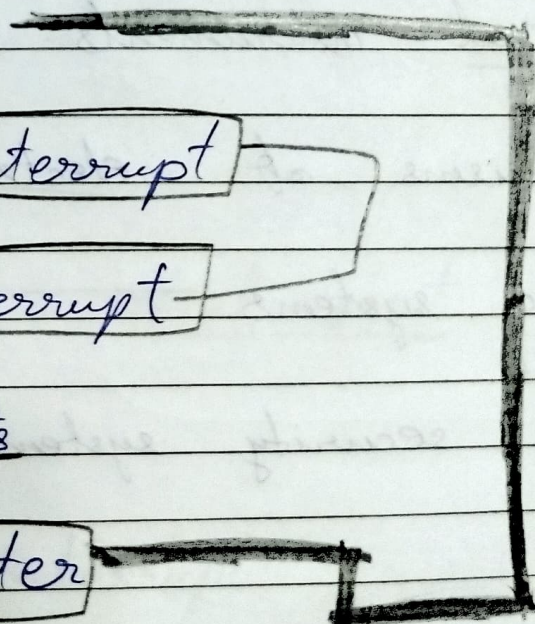 terrupt
errupt
s
ter